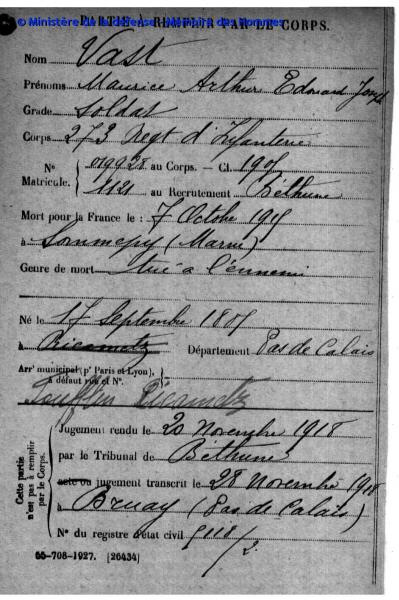 © Ministère de la défense - Mémoire des Hommes
PARTIE À REMPLIR PAR LE CORPS.
Nom Vast
Prénoms Maurice Arthur Edouard Joseph
Grade Soldat
Corps 273 Regt d'Infanterie
N° Matricule. 019928 au Corps. — Cl. 1905
1121 au Recrutement Béthune
Mort pour la France le : 7 Octobre 1915
à Sommepy (Marne)
Genre de mort tué à l'ennemi
Né le 17 Septembre 1885
à Ricametz Département Pas de Calais
Arr' municipal (p' Paris et Lyon),
à défaut rue et N°.
Foufflin Ricametz
Cette partie n'est pas à remplir par le Corps.
Jugement rendu le 20 Novembre 1918
par le Tribunal de Béthune
acte ou jugement transcrit le 28 Novembre 1918
à Bruay (Pas de Calais)
N° du registre d'état civil
55-708-1927. [26434]